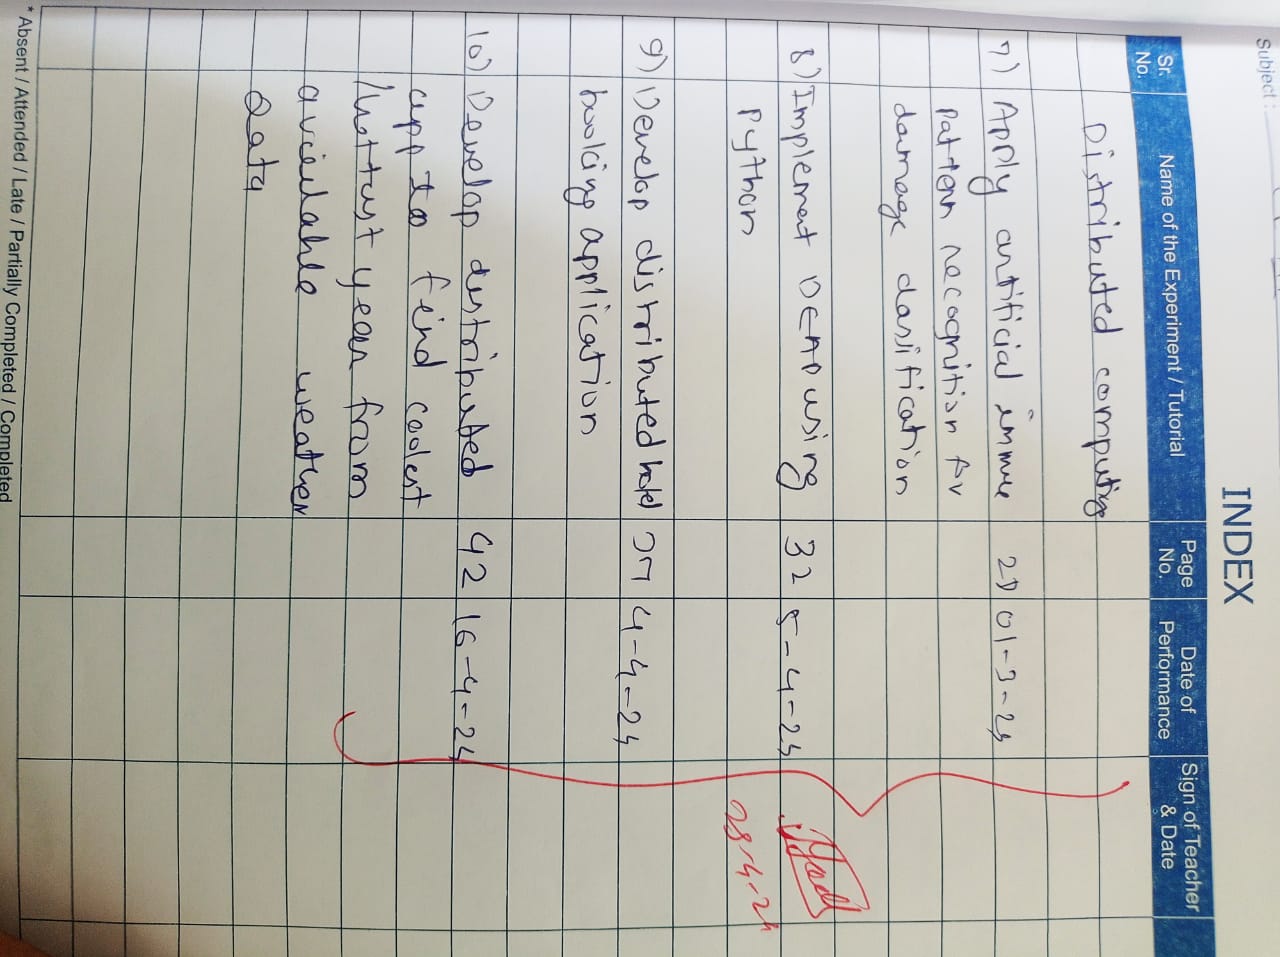 Subject :
INDEX
Sr. No. Name of the Experiment / Tutorial Page No. Date of Performance Sign of Teacher & Date
Distributed computing
7) Apply artificial immue 29 01-3-24
pattern recognition for
damage classification
8) Implement DEAP using 32 5-4-24
Python
9) Develop distributed hotel 37 4-4-24
booking application
28-4-24
10) Develop distributed 42 16-4-24
app to find coolest
/hottest year from
available weather
Data
* Absent / Attended / Late / Partially Completed / Completed